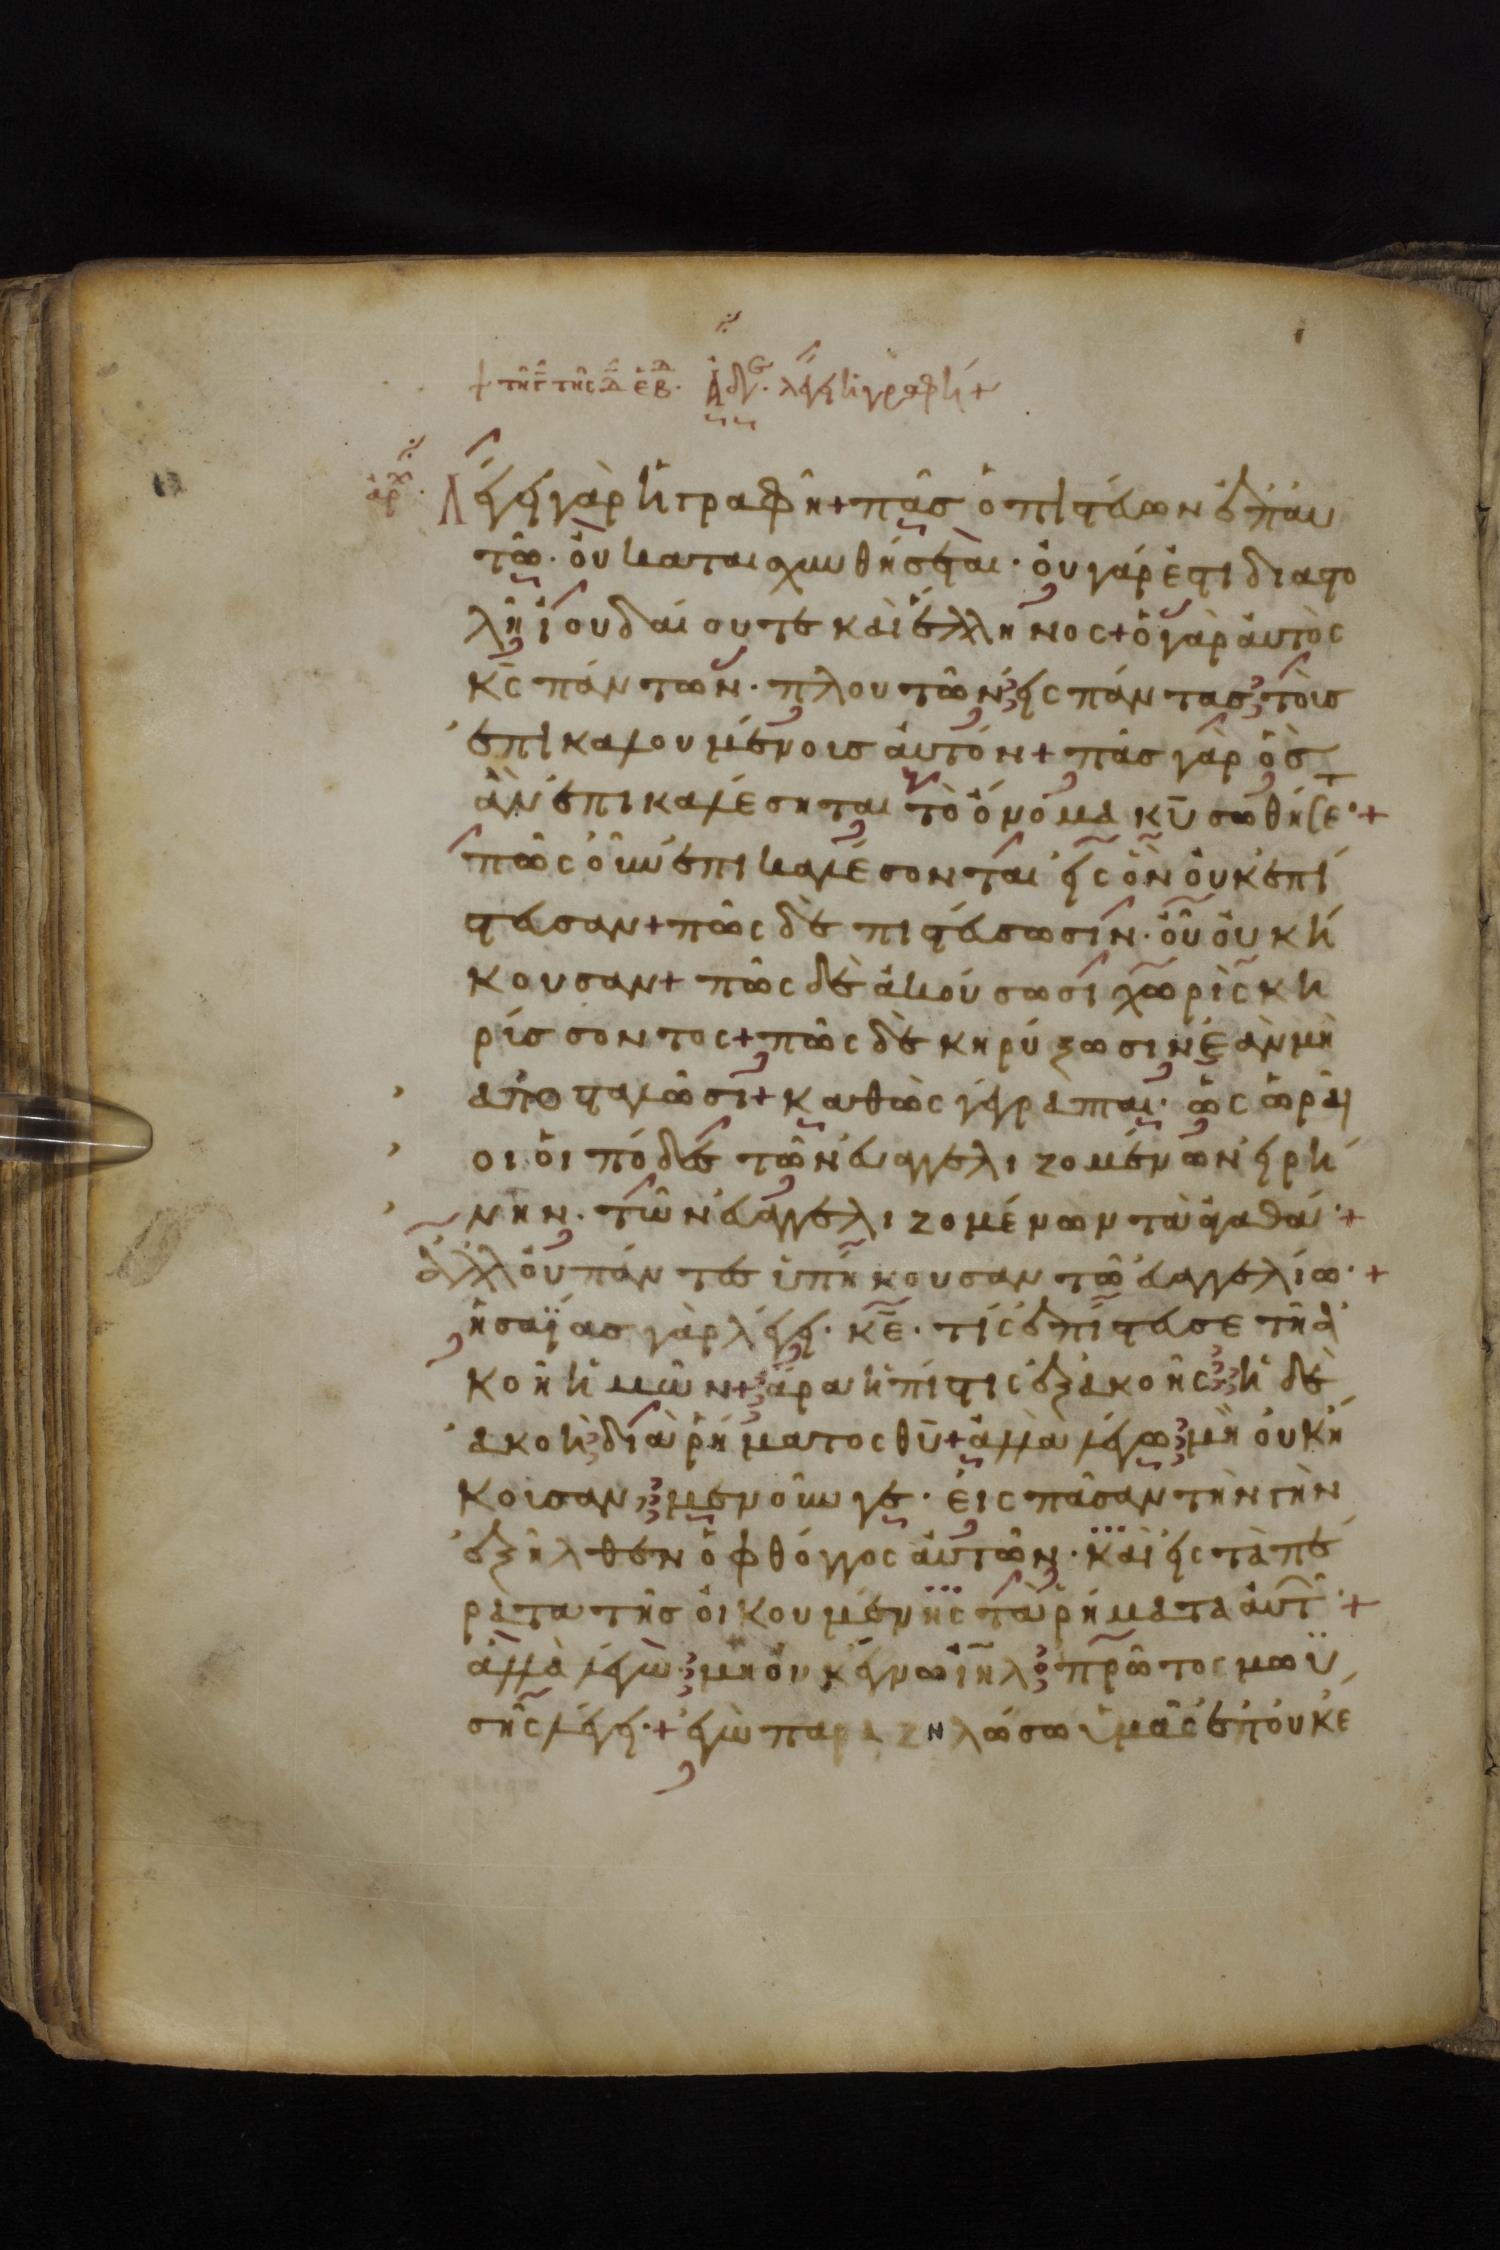 + τῆ γ τῆς δ εβ. Ἀδελφοί. λέγει ἡ γραφή +
ἀρχ. Λέγει γὰρ ἡ γραφή + πᾶς ὁ πιστεύων ἐπ' αυ
τῶ. οὐ καταισχυνθήσεται. οὐ γάρ ἐστι διαστο
λὴ ἰουδαίου τε καὶ ἕλληνος + ὁ γὰρ ἀυτὸς
κ̅ς̅ πάντων. πλουτῶν εἰς πάντας τοὺς
ἐπικαλουμένοις ἀυτόν + πᾶς γὰρ ὃς
ἂν ἐπικαλέσηται τὸ ὄνομα κ̅υ̅ σωθήσετ +
πῶς οὖν ἐπικαλέσονται εἰς ὃν οὐκ ἐπί
στευσαν + πῶς δὲ πιστεύσωσιν. οὗ οὐκ ἤ
κουσαν + πῶς δὲ ἀκούσωσι χωρὶς κη
ρίσσοντος + πῶς δὲ κηρύξωσιν ἐὰν μὴ
αποσταλῶσι + καθὼς γέγραπται. ὡς ὡραῖ
οι οἱ πόδες τῶν ἐυαγγελιζομένων εἰρή
νην. τῶν ἐυαγγελιζομένων τὰ ἀγαθά +
ἀλλ' οὐ πάντες ὑπήκουσαν τῶ ἐυαγγελίω. +
ἡσαΐας γὰρ λέγει. κ̅ε̅. τίς ἐπίστευσε τῆ ἀ
κοῆ ἡμῶν + ἄρα ἡ πίστις ἐξ ἀκοῆς ἡ δὲ
ἀκοὴ διὰ ῥήματος θ̅υ̅ + ἀλλὰ λέγω μὴ οὐκ ἤ
κοισαν, μενοῦν γε. ἐις πᾶσαν τὴν γῆν
ἐξῆλθεν ὁ φθόγγος ἀυτῶν. καὶ εἰς τὰ πέ
ρατα τῆς οἰκουμένης τὰ ῥήματα ἀυτ +
ἀλλὰ λέγω μὴ οὐκ ἔγνω ἰ̅η̅λ̅ πρῶτος μωϋ
σῆς λέγει. + ἐγὼ παραζηλώσω ὑμᾶς ἐπ' οὐκ ἔ